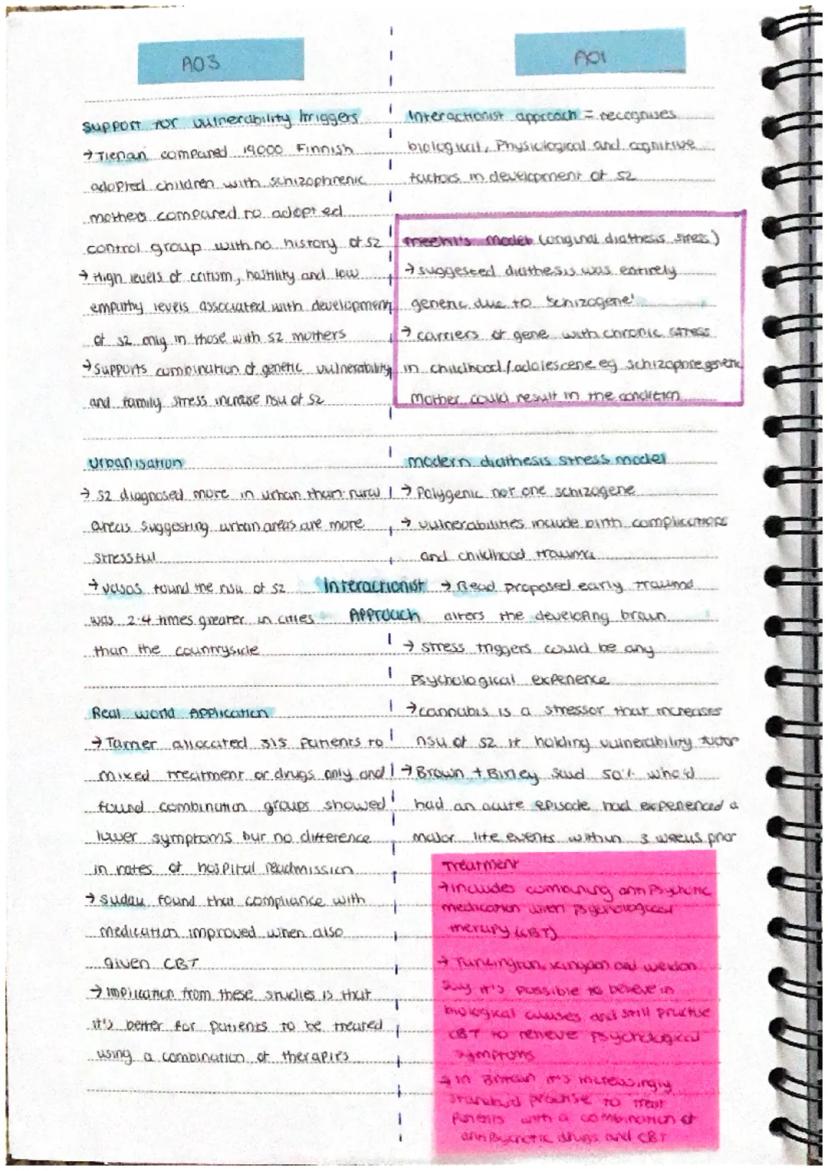 AO3
Support for vulnerability + triggers
→ Tienari compared 19000 Finnish
adopted children with schizophrenic
mothers compared to adopted
control group with no history of SZ
→ High levels of critism, hostility and low
empathy levels associated with development
of SZ only in those with SZ mothers
→ Supports combination of genetic vulnerability
and family stress increase risk of SZ
Urbanisation
→ SZ diagnosed more in urban than rural
areas suggesting urban areas are more
stressful
→ Vasos found the risk of SZ
was 2.4 times greater in cities
than the countryside
Real world Application
→ Tarrier allocated 315 patients to
mixed treatment or drugs only and
found combination groups showed
lower symptoms but no difference
in rates of hospital readmission
→ Sudau found that compliance with
medication improved when also
given CBT
→ Implication from these studies is that
it's better for patients to be treated
using a combination of therapies
Interactionist
Approach
AO1
Interactionist approach = recognises
biological, Physiological and cognitive
factors in development of SZ
Meehl's model (original diathesis stress)
→ suggested diathesis was entirely
genetic due to 'schizogene'
→ carriers of gene with chronic stress
in childhood/adolescene eg schizophregenic
mother could result in the condition
modern diathesis stress model
→ Polygenic not one schizogene
→ vulnerabilities include birth complications
and childhood trauma
→ Read proposed early trauma
alters the developing brain
→ stress triggers could be any
Psychological experience
→ cannabis is a stressor that increases
risk of SZ if holding vulnerability factor
→ Brown + Birley said 50% who'd
had an acute episode had experienced a
major life events within 3 weeks prior
Treatment
→ includes combining antipsychotic
medication with psychological
therapy (CBT)
→ Turkington, Kingdon and Weldon
say it's possible to believe in
biological causes and still practise
CBT to relieve psychological
symptoms
→ In Britain it's increasingly
standard practise to treat
patients with a combination of
antipsychotic drugs and CBT